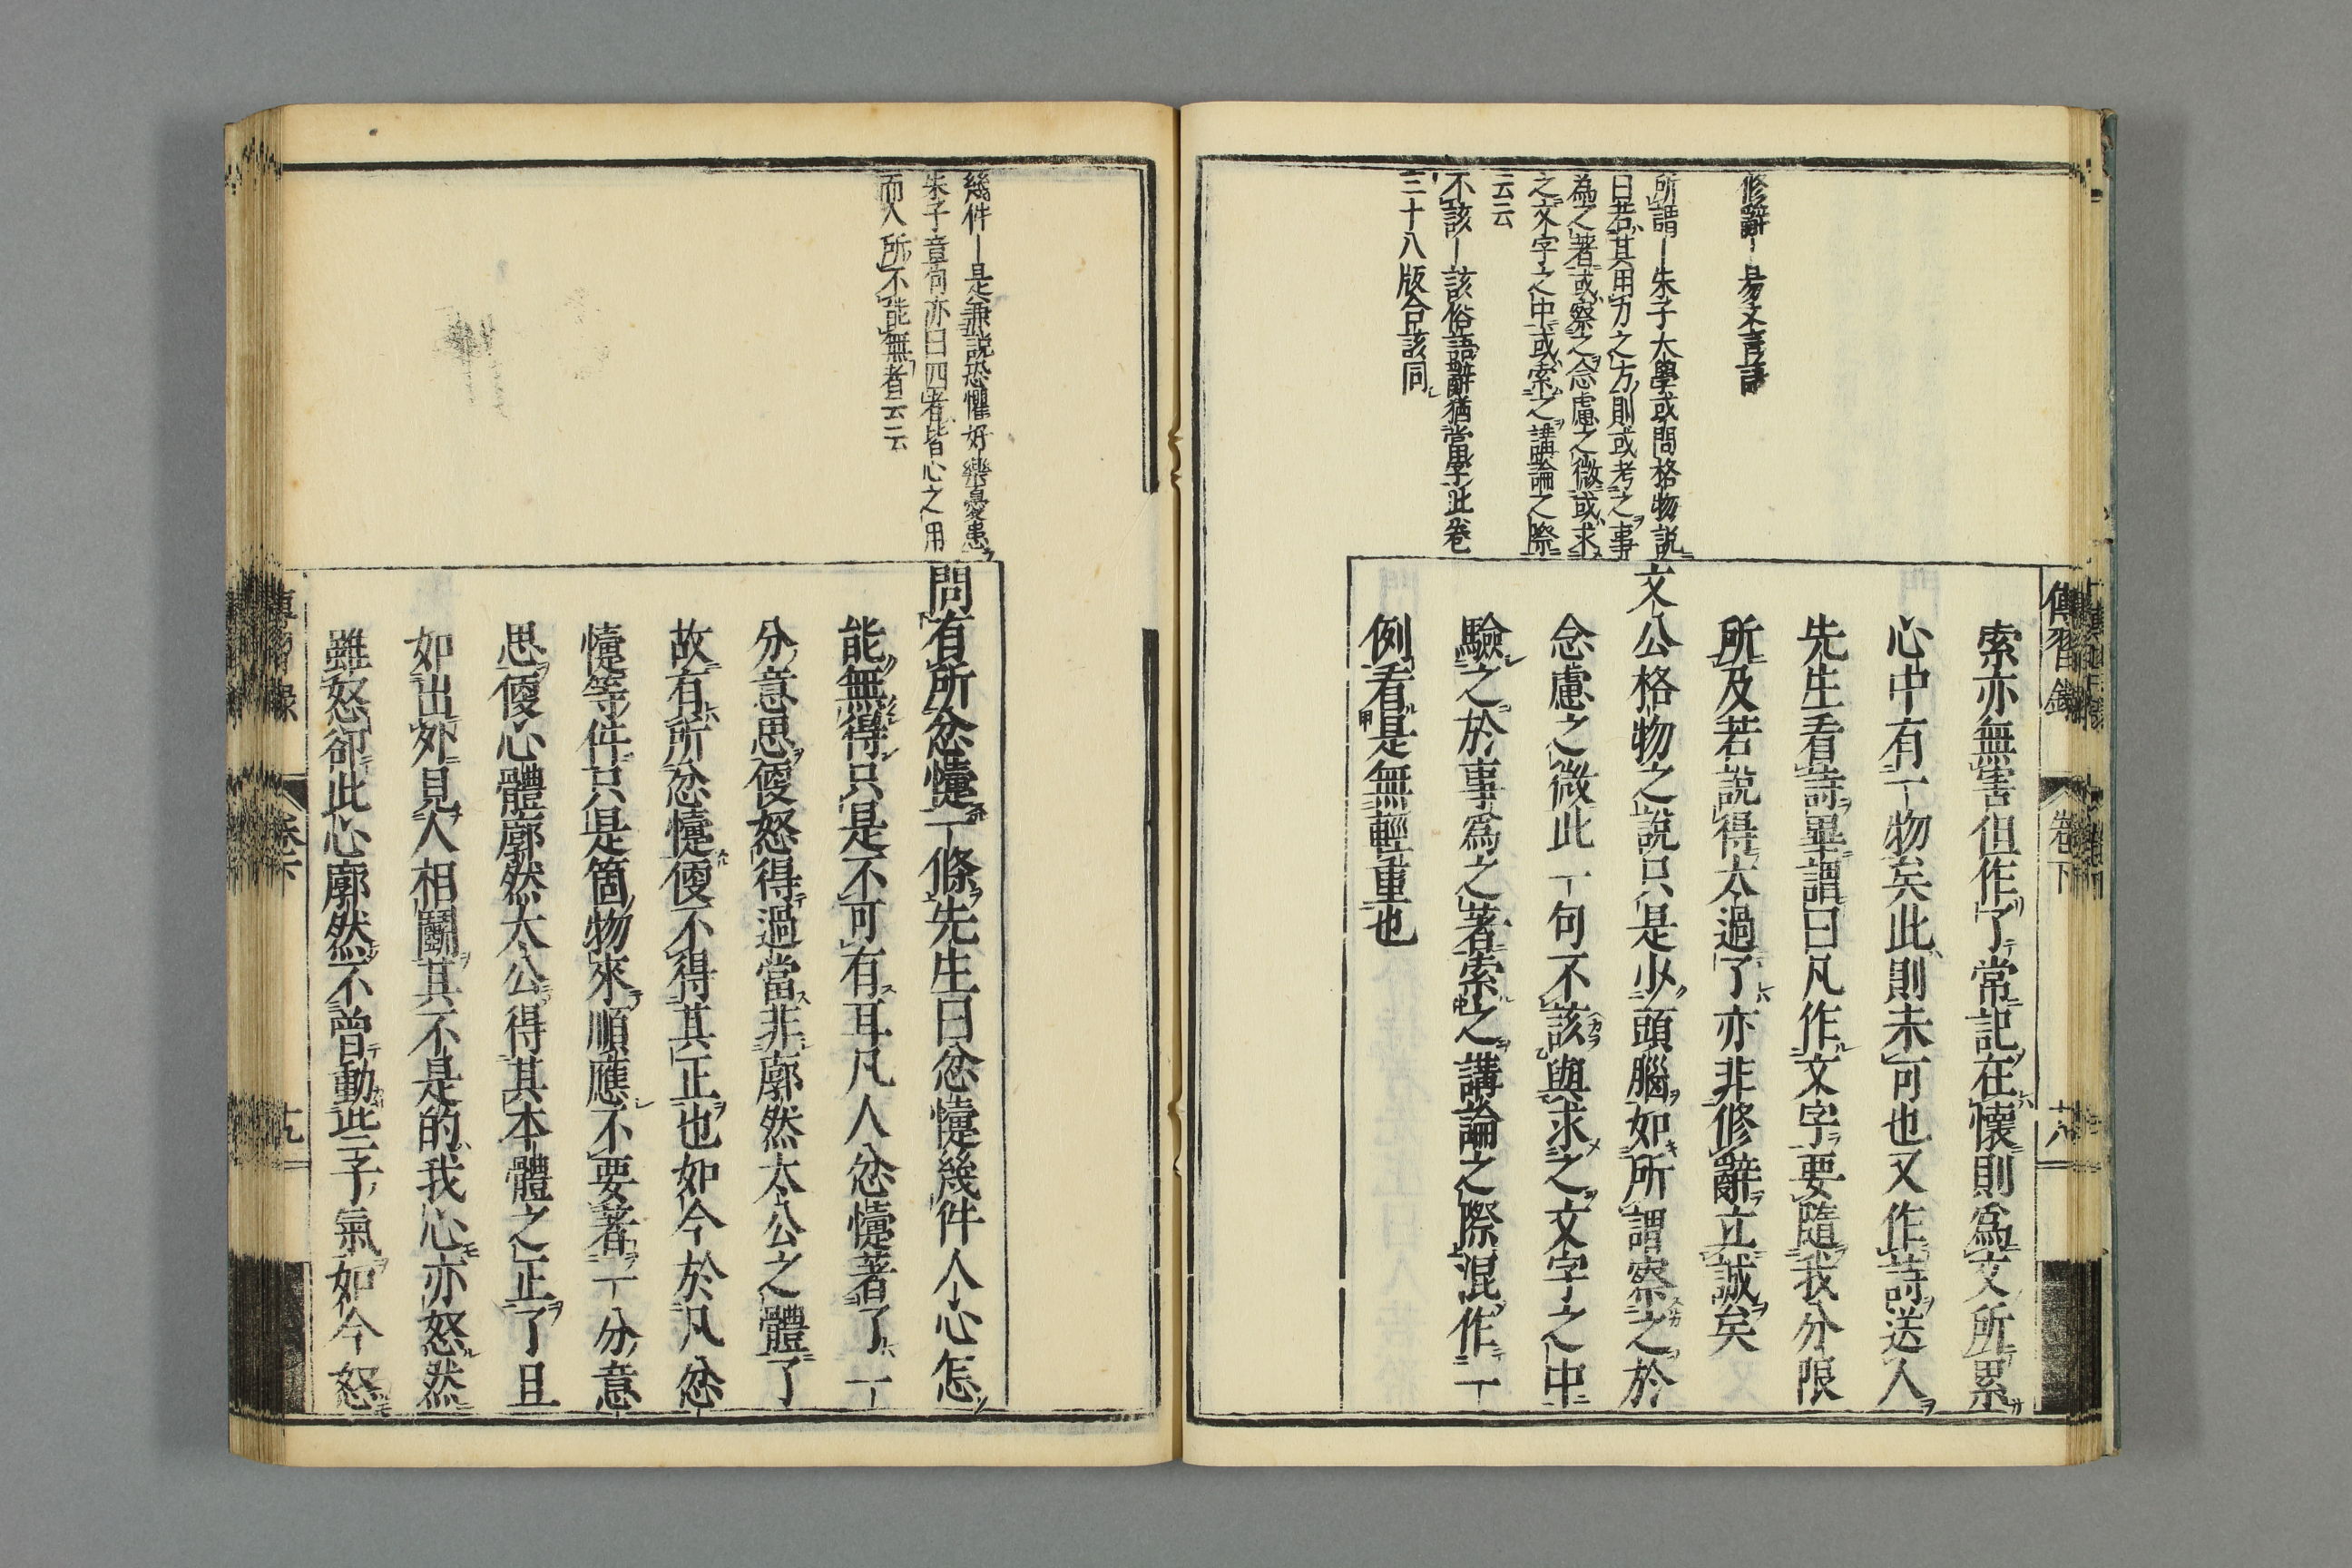 傳習錄
卷下
十八
修辭—易文言語
所謂—朱子大學或問格物説
曰若其用力之方則或考之事
為之著或察之念慮之微或求
之文字之中或索之講論之際
云云
不該—該俗語辭猶當字此卷
三十八版合該同
索亦無害但作了常記在懷則爲文所累
心中有一物矣此則未可也又作詩送人
先生看詩畢謂曰凡作文字要隨我分限
所及若説得太過了亦非修辭立誠矣
文公格物之説只是少頭腦如所謂察之於
念慮之微此一句不該與求之文字之中
驗之於事爲之著索之講論之際混作一
例看是無輕重也
幾件—是兼説恐懼好樂憂患
朱子章句亦曰四者皆心之用
而人所不能無者云云
問有所忿懥一條先生曰忿懥幾件人心怎
能無得只是不可有耳凡人忿懥著了一
分意思便怒得過當非廓然太公之體了
故有所忿懥便不得其正也如今於凡忿
懥等件只是箇物來順應不要著一分意
思便心體廓然太公得其本體之正了且
如出外見人相鬭其不是的我心亦怒然
雖怒卻此心廓然不曾動些子氣如今怒